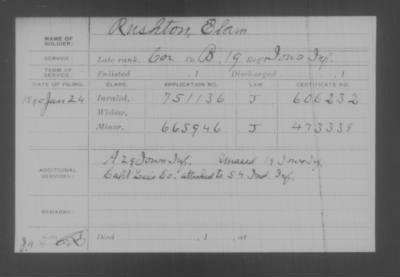 NAME OF SOLDIER: Rushton, Elam
SERVICE: Late rank, Cor Co. B, 19 Reg't Iowa Inf.
TERM OF SERVICE: Enlisted , 1 Discharged , 1
DATE OF FILING. CLASS. APPLICATION NO. LAW. CERTIFICATE NO.
1890 Jan 24 Invalid, 751136 J 606232
Widow,
Minor, 665946 J 473338
ADDITIONAL SERVICES: A. 29 Iowa Inf. 19 Iowa Inf.
Co. attached to 54 Ind. Inf.
REMARKS:
Died , 1 , at